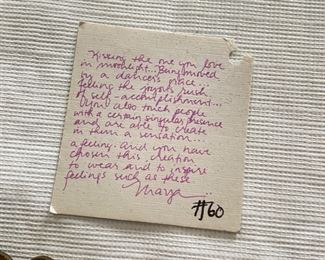 Kissing the one you love
in moonlight... Being moved
by a dancer's grace...
feeling the joyous rush
of self-accomplishment...
You also touch people
with a certain singular presence
and are able to create
in them a sensation...
a feeling. And you have
chosen this creation
to wear and to inspire
feelings such as these
Maya...
#60